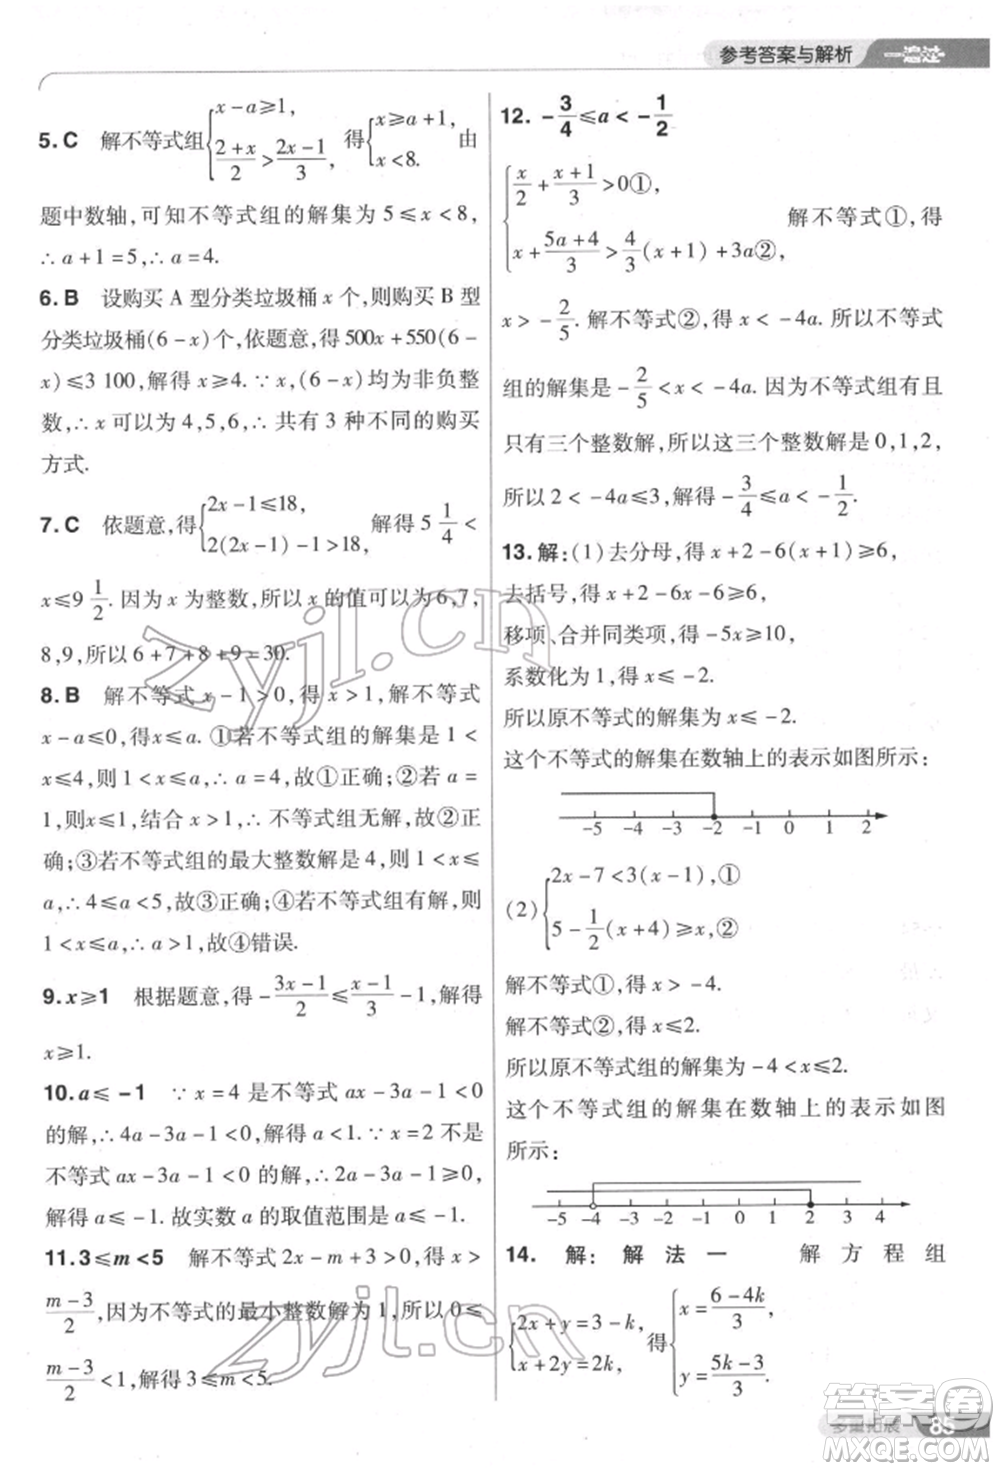 参考答案与解析 一遍过
5. C 解不等式组{x-a≥1, (2+x)/2>(2x-1)/3, 得{x≥a+1, x<8. 由
题中数轴,可知不等式组的解集为 5≤x<8,
∴a+1=5,∴a=4.
6. B 设购买 A 型分类垃圾桶 x 个,则购买 B 型
分类垃圾桶(6-x)个,依题意,得 500x+550(6-
x)≤3 100,解得 x≥4. ∵x,(6-x)均为非负整
数,∴x 可以为 4,5,6,∴共有 3 种不同的购买
方式.
7. C 依题意,得{2x-1≤18, 2(2x-1)-1>18, 解得 5 1/4<
x≤9 1/2. 因为 x 为整数,所以 x 的值可以为 6,7,
8,9,所以 6+7+8+9=30.
8. B 解不等式 x-1>0,得 x>1,解不等式
x-a≤0,得x≤a. ①若不等式组的解集是 1<
x≤4,则 1<x≤a,∴a=4,故①正确;②若 a=
1,则x≤1,结合 x>1,∴不等式组无解,故②正
确;③若不等式组的最大整数解是 4,则 1<x≤
a,∴4≤a<5,故③正确;④若不等式组有解,则
1<x≤a,∴a>1,故④错误.
9. x≥1 根据题意,得 -(3x-1)/2≤(x-1)/3-1,解得
x≥1.
10. a≤-1 ∵x=4 是不等式 ax-3a-1<0
的解,∴4a-3a-1<0,解得 a<1. ∵x=2 不是
不等式 ax-3a-1<0 的解,∴2a-3a-1≥0,
解得 a≤-1. 故实数 a 的取值范围是 a≤-1.
11. 3≤m<5 解不等式 2x-m+3>0,得 x>
(m-3)/2,因为不等式的最小整数解为 1,所以 0≤
(m-3)/2<1,解得 3≤m<5.
12. -3/4≤a<-1/2
{x/2+(x+1)/3>0①, x+(5a+4)/3>4/3(x+1)+3a②, 解不等式①,得
x>-2/5. 解不等式②,得 x<-4a. 所以不等式
组的解集是 -2/5<x<-4a. 因为不等式组有且
只有三个整数解,所以这三个整数解是 0,1,2,
所以 2<-4a≤3,解得 -3/4≤a<-1/2.
13. 解:(1)去分母,得 x+2-6(x+1)≥6,
去括号,得 x+2-6x-6≥6,
移项、合并同类项,得 -5x≥10,
系数化为 1,得 x≤-2.
所以原不等式的解集为 x≤-2.
这个不等式的解集在数轴上的表示如图所示:
-5 -4 -3 -2 -1 0 1 2
(2){2x-7<3(x-1),① 5-1/2(x+4)≥x,②
解不等式①,得 x>-4.
解不等式②,得 x≤2.
所以原不等式组的解集为 -4<x≤2.
这个不等式组的解集在数轴上的表示如图
所示:
-5 -4 -3 -2 -1 0 1 2 3 4
14. 解: 解法一 解方程组
{2x+y=3-k, x+2y=2k, 得{x=(6-4k)/3, y=(5k-3)/3.
多重拓展 85
zyjl.cn
zyjl.cn
答案圈
MXQE.COM